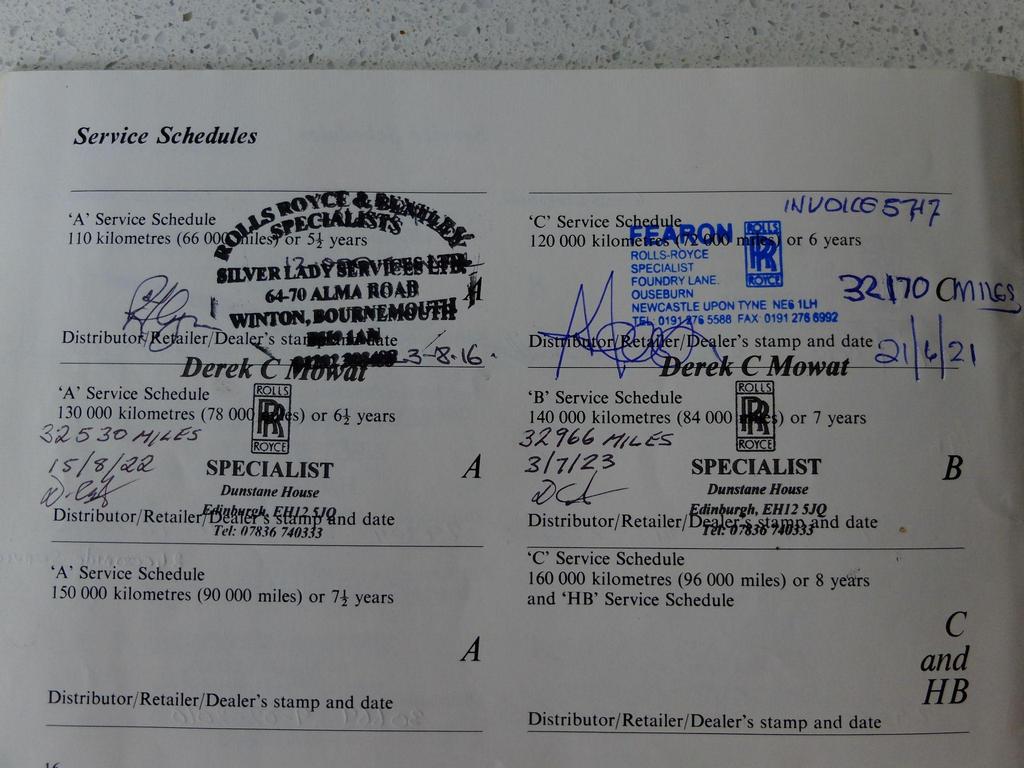 Service Schedules
'A' Service Schedule
110 kilometres (66 000 miles) or 5½ years
ROLLS ROYCE & BENTLEY
SPECIALISTS
SILVER LADY SERVICES LTD.
64-70 ALMA ROAD
WINTON, BOURNEMOUTH
A
Distributor/Retailer/Dealer's stamp and date
3-8-16.
'C' Service Schedule
120 000 kilometres (72 000 miles) or 6 years
INVOICE 5747
FEARON
ROLLS-ROYCE
SPECIALIST
FOUNDRY LANE.
OUSEBURN
NEWCASTLE UPON TYNE NE6 1LH
TEL: 0191 276 5588 FAX 0191 276 6992
ROLLS
RR
ROYCE
32170 MILES
C
Distributor/Retailer/Dealer's stamp and date
21/6/21
'A' Service Schedule
130 000 kilometres (78 000 miles) or 6½ years
32530 MILES
15/8/22
Derek C Mowat
ROLLS
RR
ROYCE
SPECIALIST
Dunstane House
Edinburgh, EH12 5JQ
Tel: 07836 740333
A
Distributor/Retailer/Dealer's stamp and date
'B' Service Schedule
140 000 kilometres (84 000 miles) or 7 years
32966 MILES
3/7/23
Derek C Mowat
ROLLS
RR
ROYCE
SPECIALIST
Dunstane House
Edinburgh, EH12 5JQ
Tel: 07836 740333
B
Distributor/Retailer/Dealer's stamp and date
'A' Service Schedule
150 000 kilometres (90 000 miles) or 7½ years
A
Distributor/Retailer/Dealer's stamp and date
'C' Service Schedule
160 000 kilometres (96 000 miles) or 8 years
and 'HB' Service Schedule
C
and
HB
Distributor/Retailer/Dealer's stamp and date